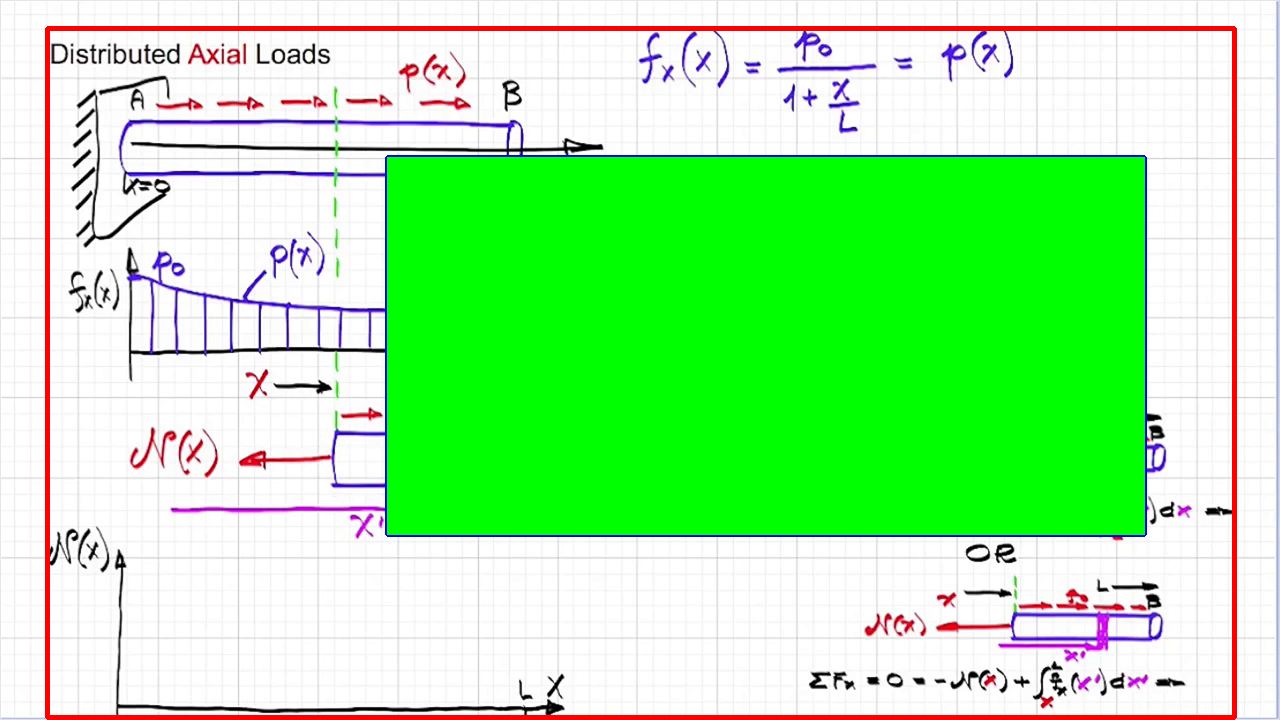 Distributed Axial Loads
f_x(x) = p_0 / (1 + x/L) = p(x)
p(x)
A B
x=0
p_0 p(x)
f_x(x)
x
N(x)
B
x'
) dx'
N(x)
OR
L
x B
N(x)
x'
L x
ΣF_x = 0 = -N(x) + ∫_x^L f_x(x') dx'